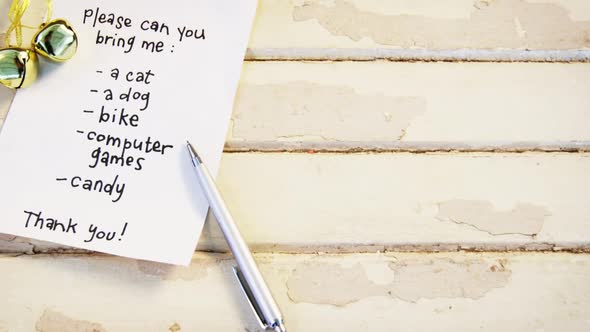 Please can you
bring me :
- a cat
- a dog
- bike
- computer
games
- candy
Thank you!